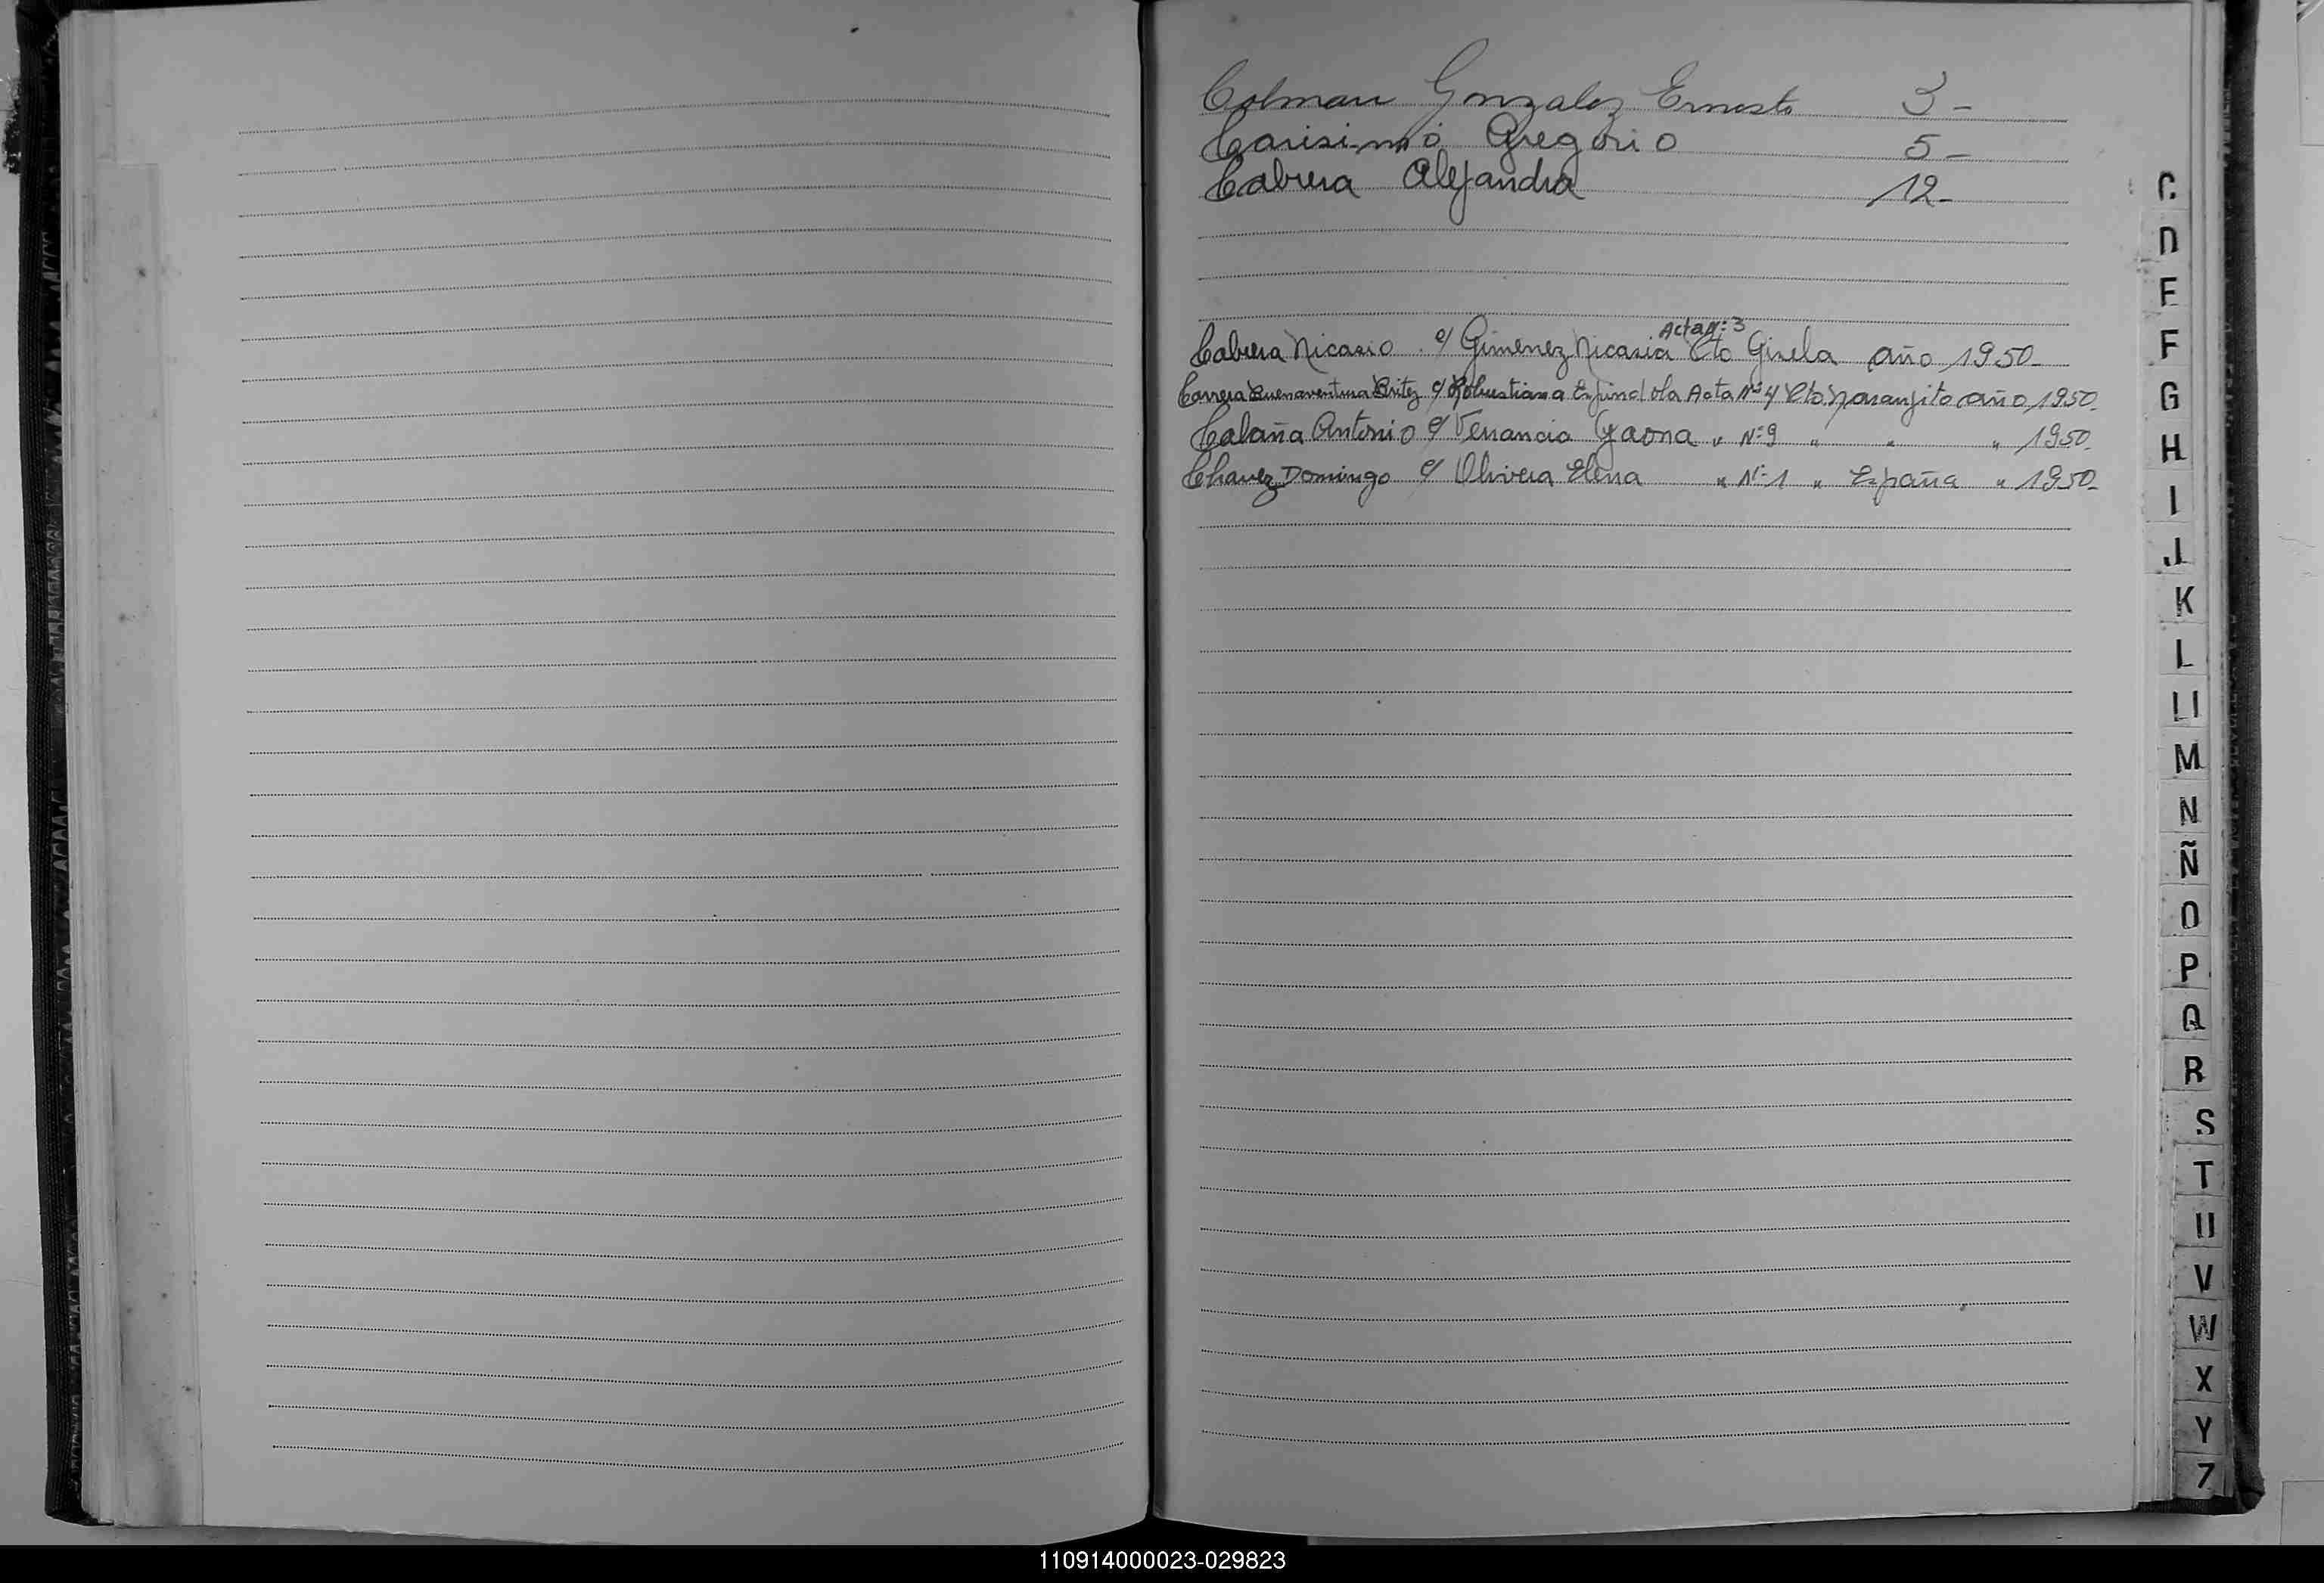 Colman Gonzalez Ernesto 3-
Carisimo Gregorio 5-
Cabrera Alejandra 12-
Acta Nº: 3
Cabrera Nicasio c/ Gimenez Nicasia Cto Gisela año 1950-
Carrera Buenaventura Britez c/ Robustiana Espindola Acta Nº 4 Cto Naranjito año 1950-
Cataña Antonio c/ Venancia Gaona " Nº 9 " " " 1950-
Chavez Domingo c/ Olivera Elena " Nº 1 " España " 1950-
C
D
E
F
G
H
I
J
K
L
Ll
M
N
Ñ
O
P
Q
R
S
T
U
V
W
X
Y
Z
110914000023-029823